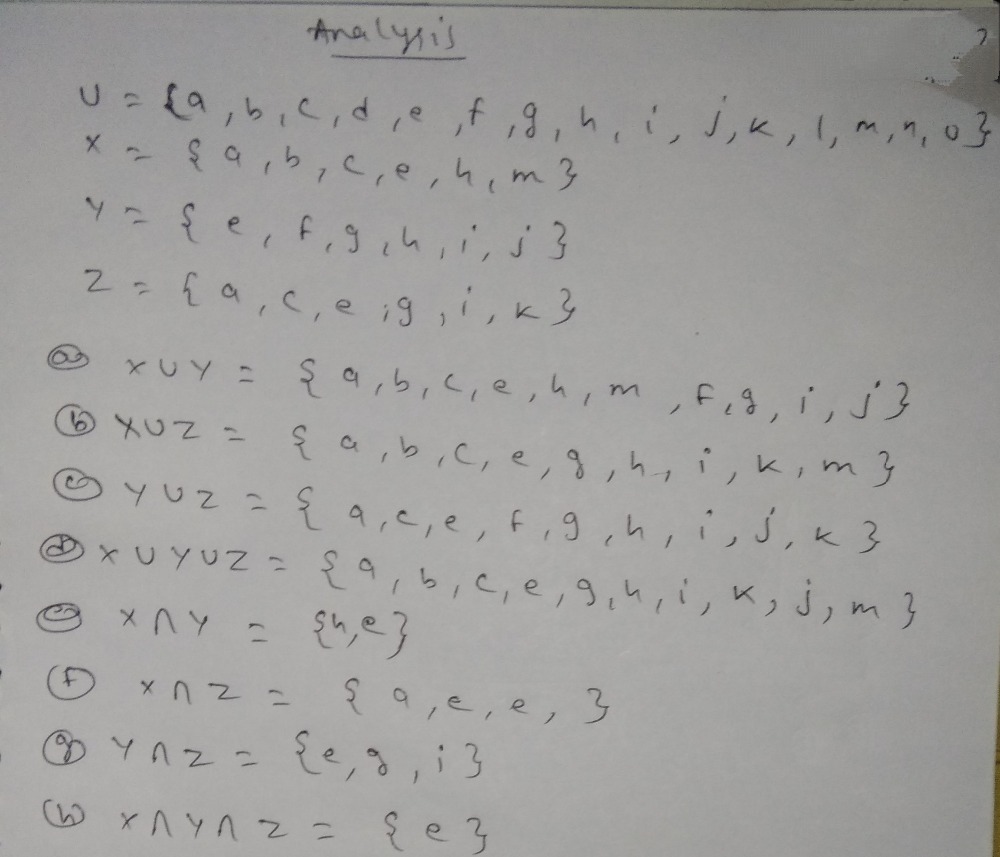 Analysis
U = {a, b, c, d, e, f, g, h, i, j, k, l, m, n, o}
X = {a, b, c, e, h, m}
Y = {e, f, g, h, i, j}
Z = {a, c, e, g, i, k}
(a) X∪Y = {a, b, c, e, h, m, f, g, i, j}
(b) X∪Z = {a, b, c, e, g, h, i, k, m}
(c) Y∪Z = {a, c, e, f, g, h, i, j, k}
(d) X∪Y∪Z = {a, b, c, e, g, h, i, k, j, m}
(e) X∩Y = {h, e}
(f) X∩Z = {a, e, e, }
(g) Y∩Z = {e, g, i}
(h) X∩Y∩Z = {e}